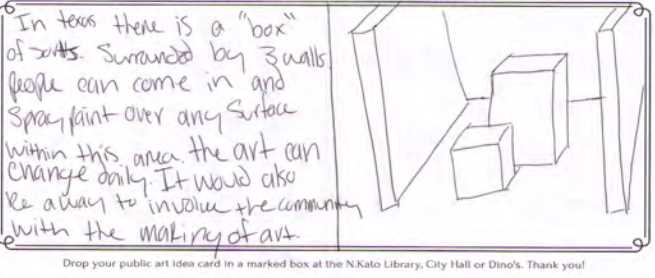 In texas there is a "box"
of sorts. Surrounded by 3 walls.
People can come in and
Spray paint over any Surface
within this area. the art can
Change daily. It would also
be a way to involve the community
with the making of art.
Drop your public art idea card in a marked box at the N.Kato Library, City Hall or Dino's. Thank you!